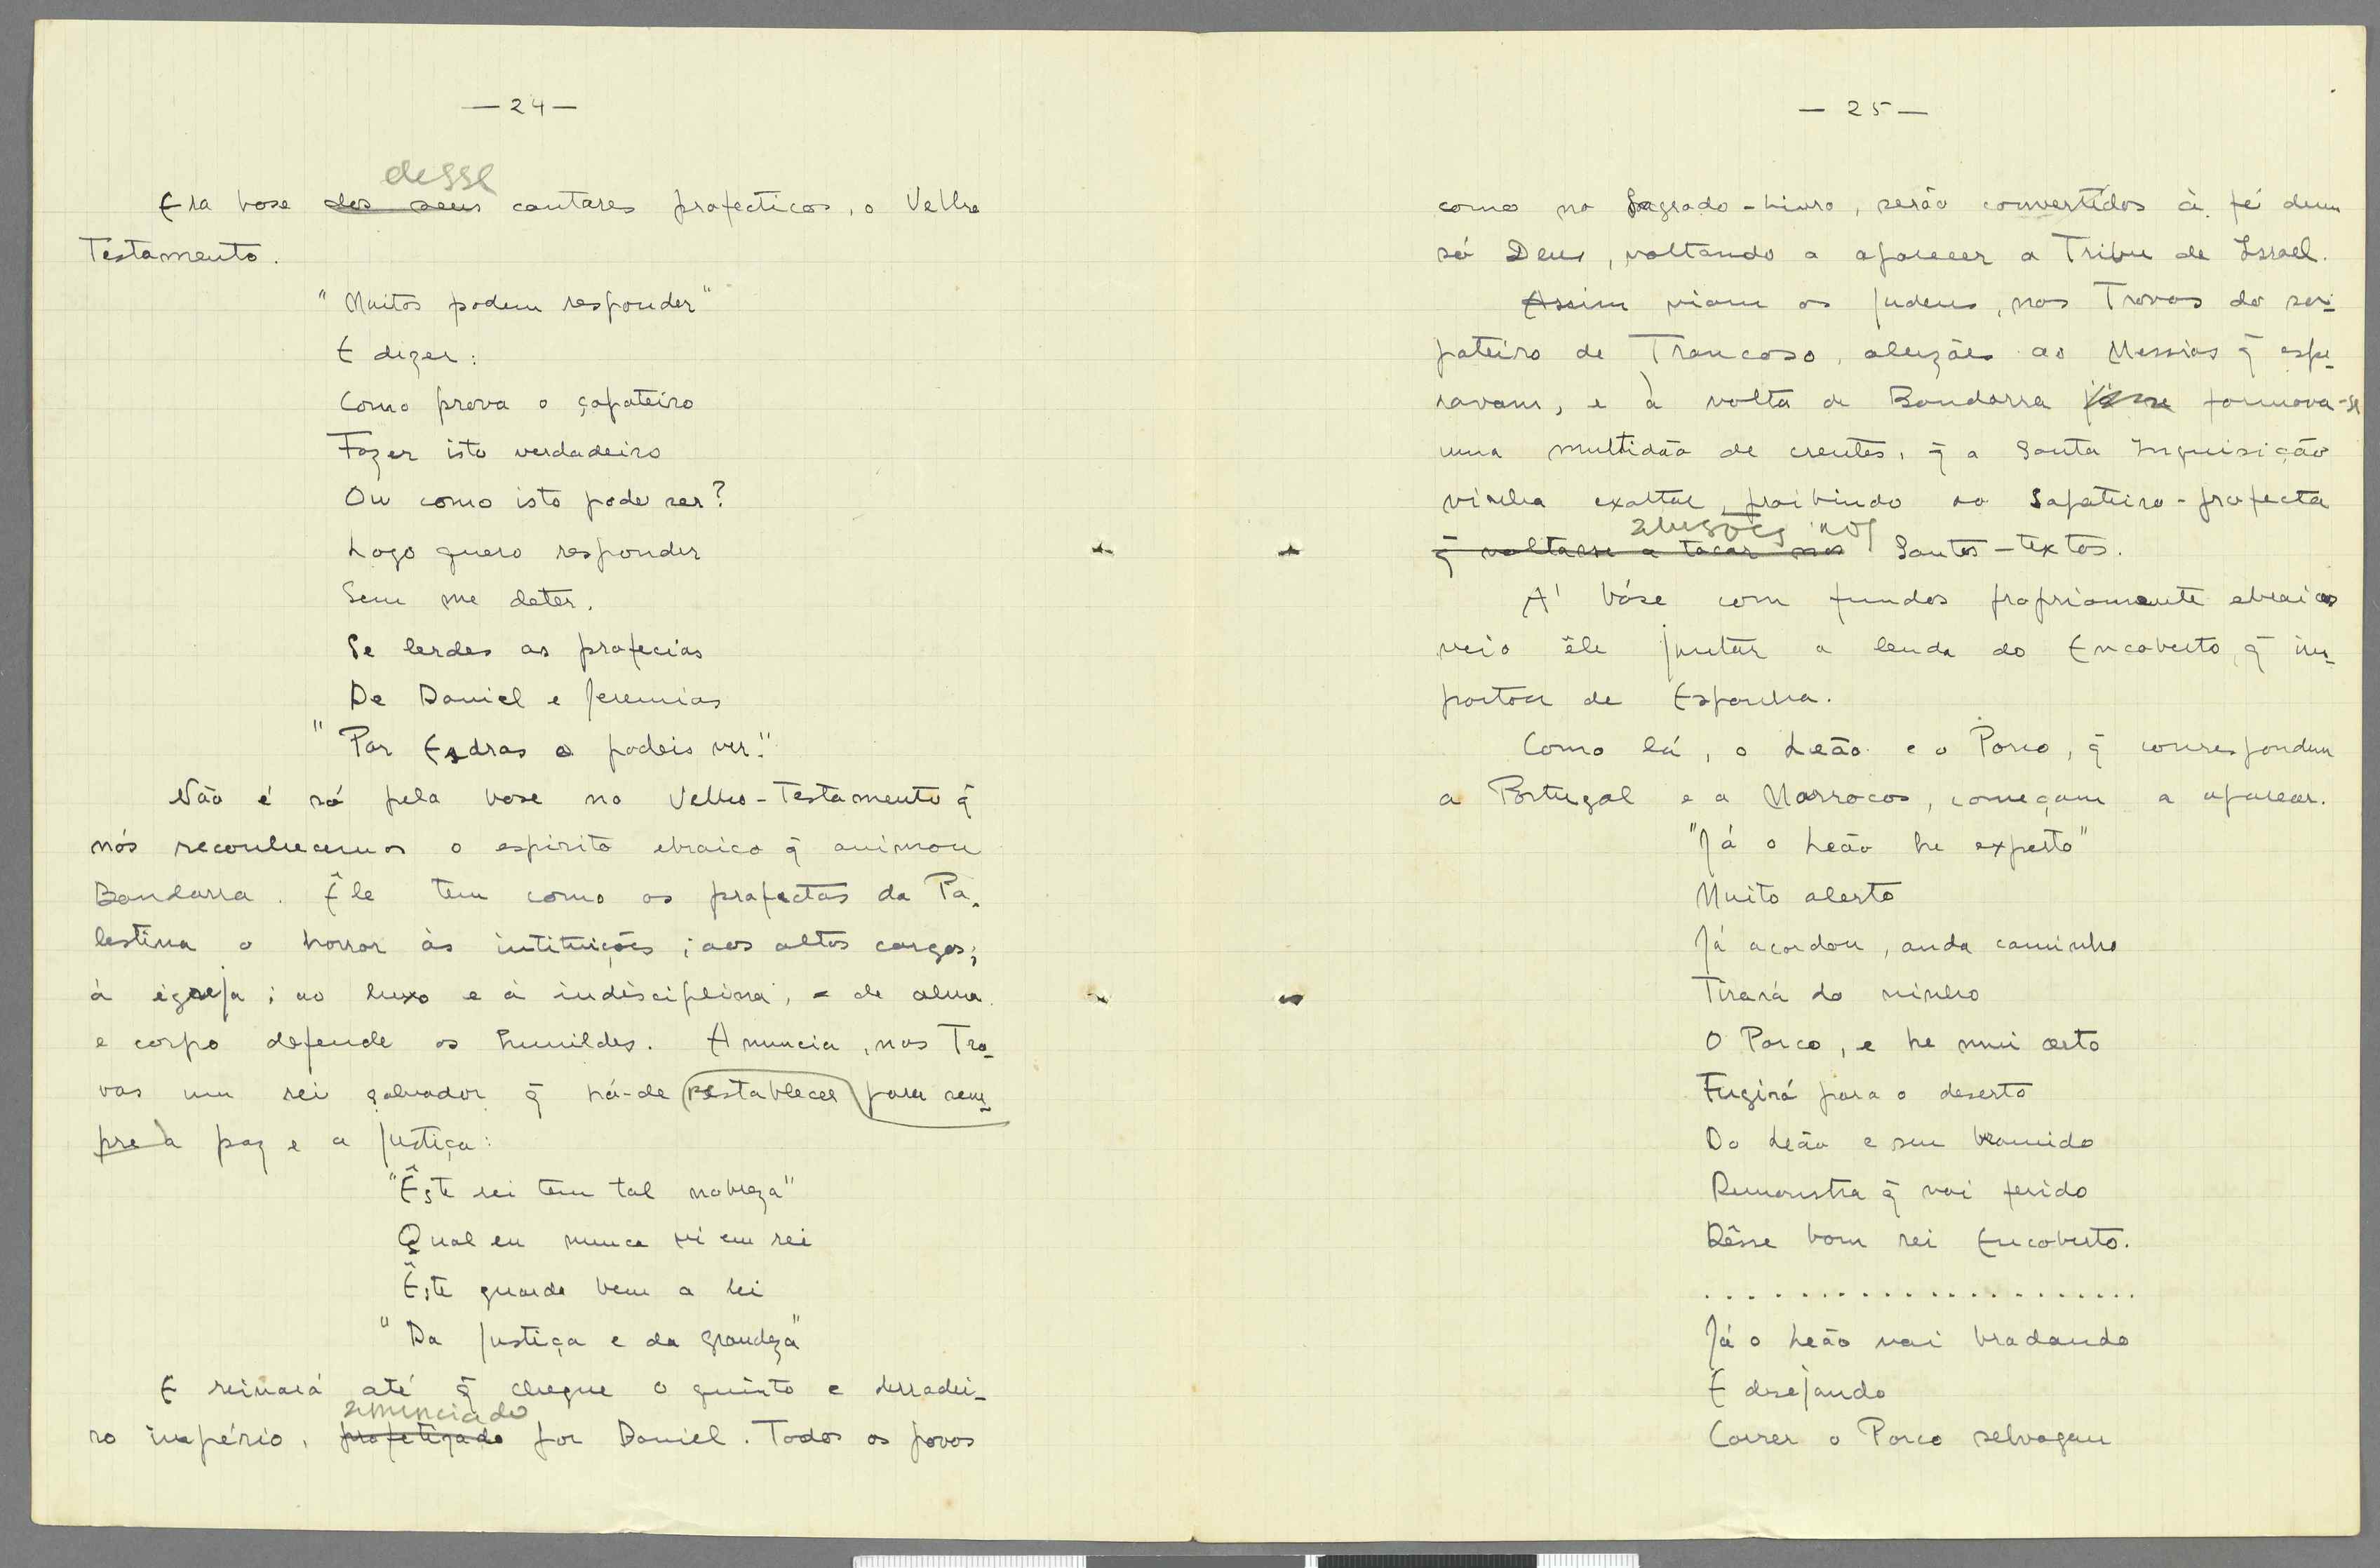 — 24 —
desse
Era base dos seus cantares profecticos, o Velho
Testamento.
"Muitos podem responder"
E dizer:
Como prova o çapateiro
Fazer isto verdadeiro
Ou como isto pode ser?
Logo quero responder
Sem me deter.
Se lerdes as profecias
De Daniel e Jeremias
"Por Esdras o podeis ver."
Não é só pela base no Velho-Testamento q̃
nós reconhecemos o espirito ebraico q̃ animou
Bandarra. Êle tem como os profectas da Pa-
lestina o horror às intituições; aos altos cargos;
à igreja; ao luxo e à indisciplina, e de alma
e corpo defende os humildes. Anuncia, nas Tro-
vas um rei salvador q̃ há-de restablecer para sem-
pre a paz e a justiça:
"Êste rei tem tal nobreza"
Qual eu nunca vi em rei
Êste guarda bem a lei
"Da justiça e da grandeza"
E reinará até q̃ chegue o quinto e derradei-
anunciado
ro império, profetizado por Daniel. Todos os povos
— 25 —
como no Sagrado-Livro, serão convertidos à fé dum
só Deus, voltando a aparecer a Tribu de Israel.
Assim viam os judeus, nas Trovas do sa-
pateiro de Trancoso, aluzões ao Messias q̃ espe-
ravam, e à volta de Bandarra formava-se
uma multidão de crentes, q̃ a Santa Inquisição
vinha exaltar, proibindo ao Sapateiro-profecta
alusões nos
q̃ voltasse a tocar nos Santos-textos.
A' báse com fundos propriamente ebraicos
veio êle juntar a lenda do Encoberto, q̃ im-
portou de Espanha.
Como lá, o Leão e o Porco, q̃ correspondem
a Portugal e a Marrocos, começam a aparecer.
"Já o Leão he experto"
Muito alerto
Já acordou, anda caminho
Tirará do ninho
O Porco, e he mui certo
Fugirá para o deserto
Do Leão e seu bramido
Demonstra q̃ vai ferido
Dêsse bom rei Encoberto.
. . . . . . . . . . . . . . . . . . . . . . .
Já o Leão vai bradando
E desejando
Correr o Porco selvagem